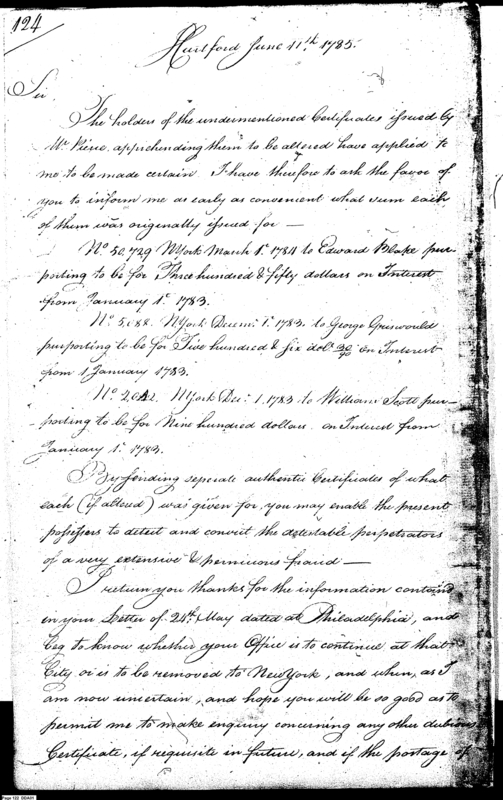 124
Hartford June 11th 1785.
Sir
The holders of the undermentioned Certificates issued by
Mr Pierce apprehending them to be altered have applied to
me to be made certain. I have therefore to ask the favor of
you to inform me as early as convenient what sum each
of them was originally issued for —
No 50,729 NYork March 1st 1784 to Edward Blake pur-
porting to be for Three hundred & fifty dollars on Interest
from January 1st 1783.
No 5,088. NYork Decemr 1st 1783, to George Griswould
purporting to be for Five hundred & six dolls 30/90 on Interest
from 1 January 1783.
No 2,042. NYork Decr 1, 1783 to William Scott pur-
porting to be for Nine hundred dollars on Interest from
January 1st 1783.
By sending seperate authentic Certificates of what
each (if altered) was given for, you may enable the present
possessors to detect and convict the detestable perpetrators
of a very extensive & pernicious fraud —
I return you thanks for the information containd
in your Letter of 24th May dated at Philadelphia, and
beg to know whether your Office is to continue at that
City, or is to be removed to New York, and when, as I
am now uncertain, and hope you will be so good as to
permit me to make enquiry concerning any other dubious
Certificate, if requisite in future, and if the postage of
Page 122